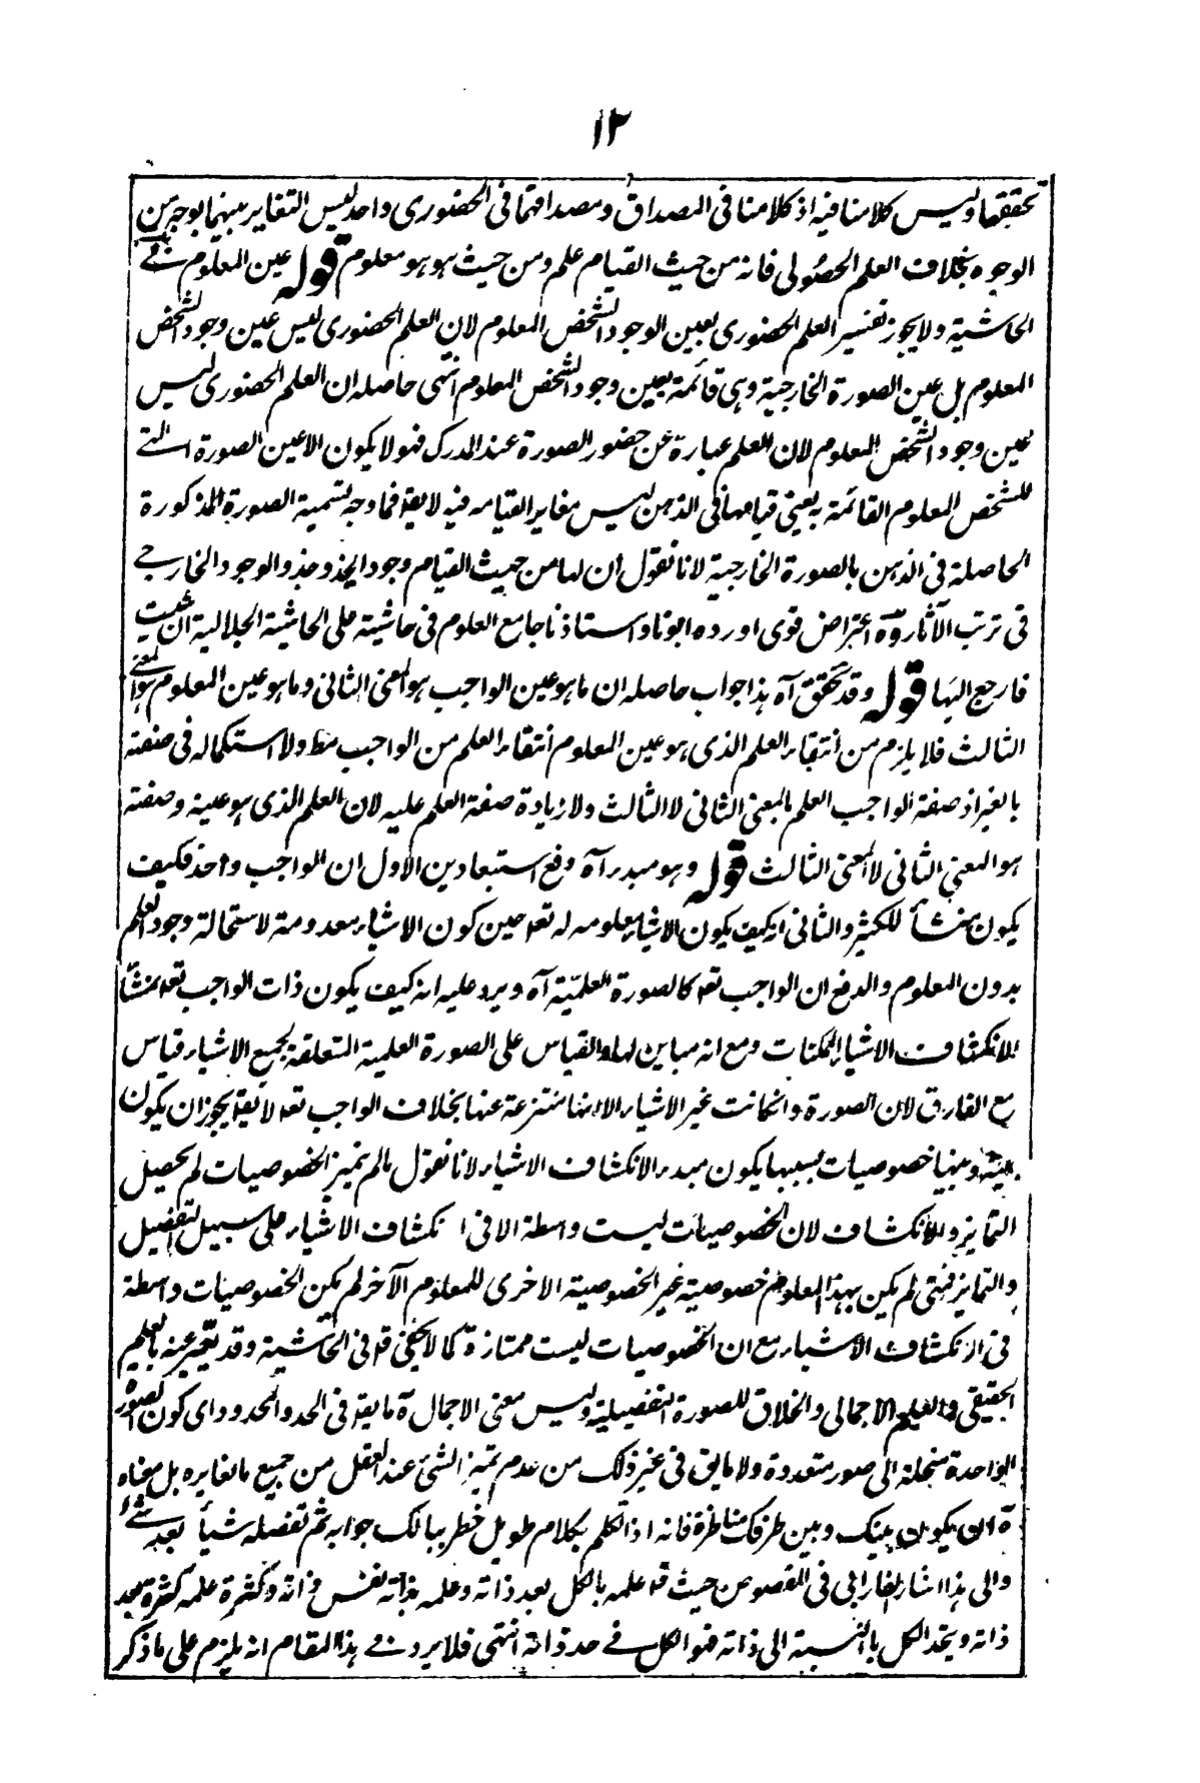 ١٢
تحققها وليس كلامنا فيه اذ كلامنا فى المصداق ومصداقهما فى الحضورى واحد ليس التغاير بينهما بوجه من
الوجوه بخلاف العلم الحصولى فانه من حيث القيام علم ومن حيث هو هو معلوم قوله عين المعلوم فى
الحاشية ولا يجوز تفسير العلم الحضورى بعين الوجود الشخص المعلوم لان العلم الحضورى ليس عين وجود الشخص
المعلوم بل عين الصورة الخارجية وهى قائمة بعين وجود الشخص المعلوم انتهى حاصله ان العلم الحضورى ليس
عين وجود الشخص المعلوم لان العلم عبارة عن حضور الصورة عند المدرك فهو لا يكون الا عين الصورة التى
للشخص المعلوم القائمة به يعنى قيامها فى الذهن ليس مغاير القيامه فيه لا يقه فما وجه تسمية الصورة المذكورة
الحاصلة فى الذهن بالصورة الخارجية لانا نقول ان لها من حيث القيام وجود ايحذو حذو الوجود الخارجى
فى ترتب الآثار وههنا اعتراض قوى اورده ابونا واستاذنا جامع العلوم فى حاشيته على الحاشية الجلالية ان شئت
فارجع اليها قوله وقد تحقق آه هذا جواب حاصله ان ما هو عين الواجب هو المعنى الثانى وما هو عين المعلوم هو المعنى
الثالث فلا يلزم من انتفاء العلم الذى هو عين المعلوم انتفاء العلم من الواجب مط ولا استكماله فى صفته
بالغير اذ صفة الواجب العلم بالمعنى الثانى لا الثالث ولا زيادة صفة العلم عليه لان العلم الذى هو عينه وصفته
هو المعنى الثانى لا المعنى الثالث قوله وهو مبدء آه دفع استبعادين الاول ان الواجب واحد فكيف
يكون منشأ للكثير والثانى انه كيف يكون الاشياء معلومه له تعه حين كون الاشياء معدومة لاستحالة وجود العلم
بدون المعلوم والدفع ان الواجب تعه كالصورة العلمية آه ويرد عليه انه كيف يكون ذات الواجب تعه منشأ
لانكشاف الاشياء الممكنات ومع انه مباين لها والقياس على الصورة العلمية المتعلقة بجميع الاشياء قياس
مع الفارق لان الصورة وانكانت غير الاشياء الا انها منتزعة عنها بخلاف الواجب تعه لا يقه يجوز ان يكون
بينه وبينها خصوصيات بسببها يكون مبدء الانكشاف الاشياء لانا نقول مالم يتميز الخصوصيات لم يحصل
التمايز والانكشاف لان الخصوصيات ليست واسطة الا فى انكشاف الاشياء على سبيل التفصيل
والتمايز فمتى لم يكن بهذا المعلوم خصوصية غير الخصوصية الاخرى للمعلوم الآخر لم يكن الخصوصيات واسطة
فى انكشاف الاشياء مع ان الخصوصيات ليست ممتازة كما لا يخفى قه فى الحاشية وقد يعبر عنه بالعلم
الحقيقى والعلم الاجمالى والخلاق للصورة التفصيلية وليس معنى الاجمال ة ما يقه فى الحد والمحدود اى كون الصورة
الواحدة منحلة الى صور متعددة ولا ما يق فى غير ذلك من عدم تميز الشئ عند العقل من جميع ما يغايره بل معناه
ة ان يكون بينك وبين طرفك مناظرة فانه اذا تكلم بكلام طويل خطر ببالك جوابه ثم تفصله شيأ بعد شئ
والى هذا اشار الفارابى فى الفصوص حيث قه علمه بالكل بعد ذاته وعلمه بذاته نفس ذاته وكثرة علمه كثرة بعد
ذاته ويتحد الكل بالنسبة الى ذاته فهو الكل فى حد ذاته انتهى فلا يرد فى هذا المقام انه يلزم على ما ذكر